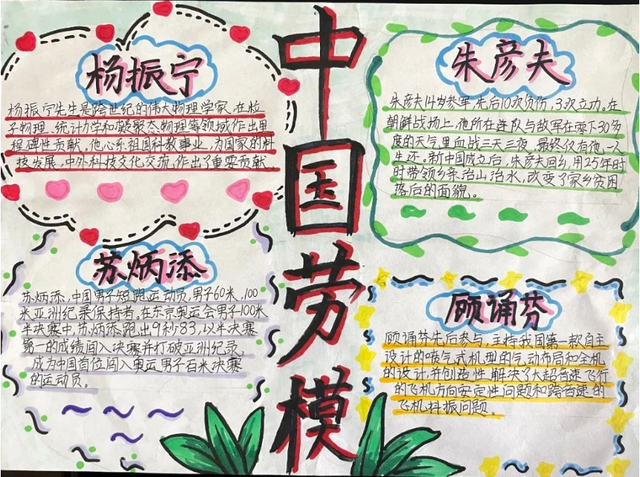 中国劳模
杨振宁
杨振宁先生是跨世纪的伟大物理学家,在粒
子物理、统计力学和凝聚态物理等领域作出里
程碑性贡献。他心系祖国科教事业,为国家的科
技发展、中外科技文化交流作出了重要贡献
朱彦夫
朱彦夫14岁参军,先后10次负伤,3次立功,在
朝鲜战场上,他所在连队与敌军在零下30多
度的天气里血战三天三夜,最终仅有他一人
生还。新中国成立后,朱彦夫回乡,用25年时
时带领乡亲治山治水,改变了家乡贫困
落后的面貌。
苏炳添
苏炳添,中国男子短跑运动员,男子60米、100
米亚洲纪录保持者,在东京奥运会男子100米
半决赛中,苏炳添跑出9秒83,以半决赛
第一的成绩闯入决赛并打破亚洲纪录,
成为中国首位闯入奥运男子百米决赛
的运动员。
顾诵芬
顾诵芬先后参与、主持我国第一款自主
设计的喷气式机型的气动布局和全机
的设计并创造性解决了大超音速飞行
的飞机方向安定性问题和跨音速的
飞机抖振问题。